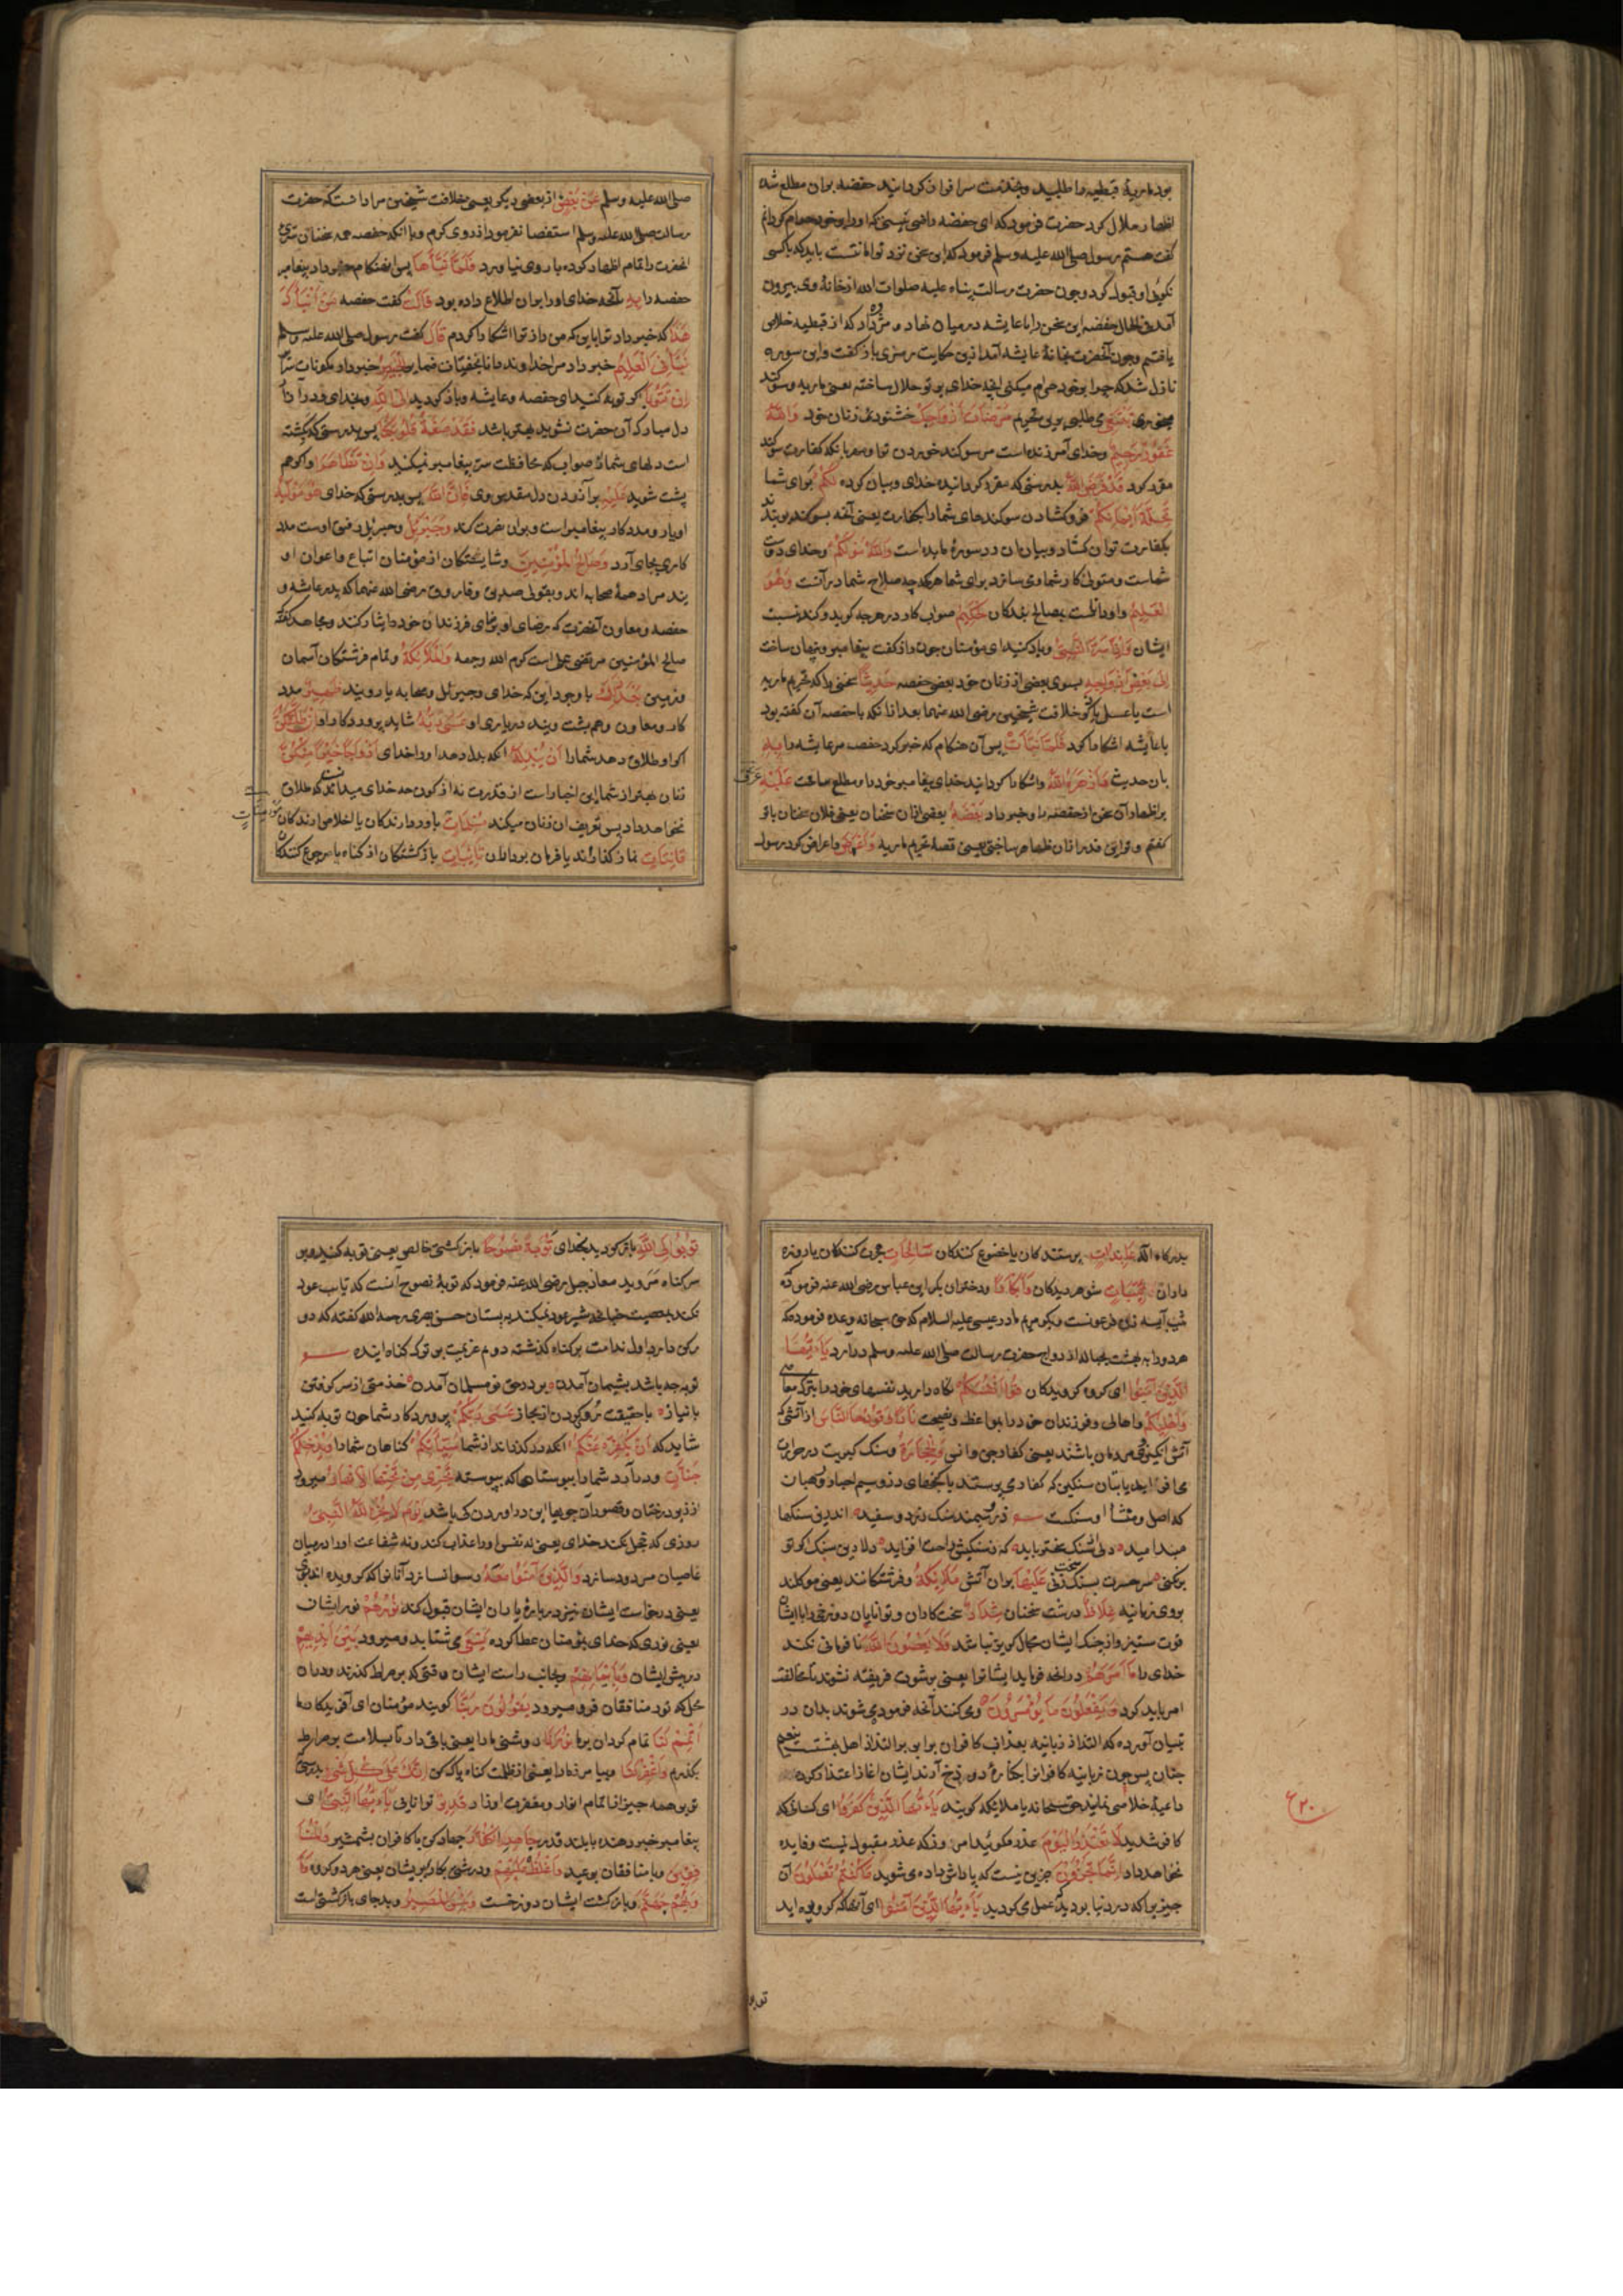 بود ماریهٔ قبطیه را طلبید و بخدمت سرافراز کردانید حفصه بران مطلع شده
اظهار ملال کرد حضرت فرمود که ای حفصه راضی نیستی که او را بر خود حرام کردانم
گفت هستم رسول صلی الله علیه وسلم فرمود که این سخن نزد تو امانتست باید که با کسی
نکویی او قبول کرد و چون حضرت رسالت پناه علیه صلوات الله از خانهٔ وی بیرون
آمد فی الحال حفصه این سخن را با عایشه در میان نهاد و مژده داد که از قبطیه خلاص
یافتیم و چون آنحضرت بخانهٔ عایشه آمد ازین حکایت رمزی باز گفت و این سوره
نازل شد که چرا بر خود حرام میکنی آنچه خدای بر تو حلال ساخته یعنی ماریه و سوگند
میخوری تَبْتَغِي می طلبی برین تحریم مَرْضَاتَ أَزْوَاجِكَ خشنودی زنان خود وَاللَّهُ
غَفُورٌ رَحِيمٌ و خدای آمرزنده است مر سوکند خوردن ترا و مهربانکه کفارت سوکند
مقرر کرد قَدْ فَرَضَ اللَّهُ بدرستی که مقرر کردانیده خدای و بیان کرده لَكُمْ برای شما
تَحِلَّةَ أَيْمَانِكُمْ فروکشادن سوکندهای شما را بکفارت یعنی آنچه بسوکند بر بندند
بکفارت توان کشاد و بیان آن در سورهٔ مایده است وَاللَّهُ مَوْلَاكُمْ و خدای دوست
شماست و متولی کار شما و می سازد برای شما هر چه صلاح شما در آنست وَهُوَ
الْعَلِيمُ و او داناست بمصالح بندکان الْحَكِيمُ صواب کار در هر چه کوید و کند نسبت
ایشان وَإِذْ أَسَرَّ النَّبِيُّ و یاد کنید ای مؤمنان چون راز گفت پیغامبر و پنهان ساخت
إِلَىٰ بَعْضِ أَزْوَاجِهِ بسوی بعضی از زنان خود یعنی حفصه حَدِيثًا سخنی را که تحریم ماریه
است یا عسل یا ذکر خلافت شیخین رضی الله عنهما بعد ازانکه با حفصه آن گفته بود
با عایشه اشکارا کرد فَلَمَّا نَبَّأَتْ پس آن هنکام که خبر کرد حفصه مر عایشه را بِهِ
بان حدیث وَأَظْهَرَهُ اللَّهُ و اشکارا کردانید خدای پیغامبر خود را و مطلع ساخت عَلَيْهِ عَرَّفَ
بر اظهار آن سخن از حفصه او خبر داد بَعْضَهُ بعضی ازان سخنان یعنی فلان سخنان با تو
گفتم و تو این قدر ازان ظاهر ساختی یعنی قصهٔ تحریم ماریه وَأَعْرَضَ و اعراض کرد رسول
صلی الله علیه وسلم عَنْ بَعْضٍ از بعضی دیکر یعنی خلافت شیخین مراد آنست که حضرت
رسالت صلی الله علیه وسلم استقصا نفرمود از روی کرم و با آنکه حفصه همه سخنان سرّی
آنحضرت را تمام اظهار کرده با روی نیاورد فَلَمَّا نَبَّأَهَا پس آن هنکام خبر داد پیغامبر
حفصه را بِهِ بآنچه خدای او را بران اطلاع داده بود قَالَتْ گفت حفصه مَنْ أَنْبَأَكَ
هَٰذَا که خبر داد ترا باین که من راز ترا اشکارا کردم قَالَ گفت رسول صلی الله علیه وسلم
نَبَّأَنِيَ الْعَلِيمُ خبر داد مرا خداوند دانا بخفیّات ضمایر الْخَبِيرُ خبردار بمکونات سرایر
إِنْ تَتُوبَا اگر توبه کنید ای حفصه و عایشه و باز گردید إِلَى اللَّهِ بخدای و در ازار
دل مبارک آن حضرت نشوید بهتر باشد فَقَدْ صَغَتْ قُلُوبُكُمَا پس بدرستی که کشته
است دلهای شما از صواب که محافظت سرّ پیغامبر نمیکنید وَإِنْ تَظَاهَرَا و اگر هم
پشت شوید عَلَيْهِ بر آزردن دل مقدس وی فَإِنَّ اللَّهَ پس بدرستی که خدای هُوَ مَوْلَاهُ
او یار و مددکار پیغامبر است و بران نصرت کند وَجِبْرِيلُ و جبرئیل رفیق اوست مدد
کاری بجای آرد وَصَالِحُ الْمُؤْمِنِينَ و شایستگان از مؤمنان اتباع و اعوان او
یند مراد همهٔ صحابه اند و بقولی صدیق و فاروق رضی الله عنهما که پدر عایشه و
حفصه و معاون آنحضرت که رضای او بر رضای فرزندان خود ایثار کنند و مجاهد گفته
صالح المؤمنین مرتضی علی است کرم الله وجهه وَالْمَلَائِكَةُ و تمام فرشتکان آسمان
و زمین بَعْدَ ذَٰلِكَ با وجود این که خدای و جبرئیل و صحابه یار ویند ظَهِيرٌ مدد
کار و معاون و هم پشت ویند در یاری او عَسَىٰ رَبُّهُ شاید پروردکار او إِنْ طَلَّقَكُنَّ
اگر او طلاق دهد شما را أَنْ يُبْدِلَهُ انکه بدل دهد او را خدای أَزْوَاجًا خَيْرًا مِنْكُنَّ
زنان بهتر از شما این اخبار است از قدرت نه از کون چه خدای میدانست که طلاق
نخواهد داد پس تعریف آن زنان میکند مُسْلِمَاتٍ مُؤْمِنَاتٍ باور دارندکان یا اخلاص آرندکان
قَانِتَاتٍ نماز کذارانند یا فرمان برداران تَائِبَاتٍ باز کشتکان از کناه یا رجوع کنندکان
بدرگاه الله عَابِدَاتٍ پرستندکان یا خضوع کنندکان سَائِحَاتٍ هجرت کنندکان یا روزه
داران ثَيِّبَاتٍ شوهر دیدکان وَأَبْكَارًا و دختران بکر ابن عباس رضی الله عنه فرموده
ثیب آسیه زن فرعونست و بکر مریم مادر عیسی علیه السلام که حق سبحانه وعده فرموده که
هر دو را به بهشت بحبالهٔ ازدواج حضرت رسالت صلی الله علیه وسلم درآرد يَا أَيُّهَا
الَّذِينَ آمَنُوا ای کروه کرویدکان قُوا أَنْفُسَكُمْ نکاه دارید نفسهای خود را بترک معاصی
وَأَهْلِيكُمْ و اهالی و فرزندان خود را بمواعظ و نصیحت نَارًا وَقُودُهَا النَّاسُ از آتشی که
آتش انکیز وی مردمان باشند یعنی کفار جن و انس وَالْحِجَارَةُ و سنک کبریت در حرارت
می افزاید یا بتان سنکین که کفار می پرستند یا کنجهای زر و سیم احبار و رهبان
که اصل و منشأ او سنکست زر و سیمند سنک زرد و سفید اندرین سنکها
مبند امید دل از سنک سختر باید که ز سنکیش راحت افزاید دلا دین سنک اکر تو
برکنی سر حسرت بسنک سخت زنی عَلَيْهَا بران آتش مَلَائِكَةٌ و فرشتکانند یعنی موکلند
بروی زبانیه غِلَاظٌ درشت سخنان شِدَادٌ سخت کاران و توانایان دوزخی را با ایشان
قوت ستیز و از جنک ایشان مجال کریز نباشد لَا يَعْصُونَ اللَّهَ نافرمانی نکنند
خدای را مَا أَمَرَهُمْ در آنچه فرماید ایشانرا یعنی برشوت فریفته نشوند تا مخالفت
امر باید کرد وَيَفْعَلُونَ مَا يُؤْمَرُونَ و می کنند آنچه فرموده می شوند بدان در
تبیان آورده که التذاذ زبانیه بعذاب کافران برابر التذاذ اهل بهشتست بنعیم
جنان پس چون زبانیه کافرانرا بکنارهٔ دوزخ آرند ایشان اغاز اعتذار کرده
داعیهٔ خلاصی نمایند حق سبحانه یا ملایکه کویند يَا أَيُّهَا الَّذِينَ كَفَرُوا ای کسانی که
کافر شدید لَا تَعْتَذِرُوا الْيَوْمَ عذر مکویید امروز که عذر مقبول نیست و فایده
نخواهد داد إِنَّمَا تُجْزَوْنَ جزین نیست که پاداش داده می شوید مَا كُنْتُمْ تَعْمَلُونَ آن
چیز را که در دنیا بودید که عمل می کردید يَا أَيُّهَا الَّذِينَ آمَنُوا ای آنها که کرویده اید
توبوا
ع ۲۰
تُوبُوا إِلَى اللَّهِ باز کردید بخدای تَوْبَةً نَصُوحًا بازکشتی خالص یعنی توبه کنید و بر
سر کناه مروید معاذ جبل رضی الله عنه فرمود که توبهٔ نصوح آنست که تایب عود
نکند بمعصیت چنانچه شیر عود نمیکند به پستان حسن بصری رحمه الله گفته که دو
رکن دارد اول ندامت بر کناه کذشته دوم عزیمت بر ترک کناه آینده
توبه چه باشد پشیمان آمدن بر در حق نو مسلمان آمدن خدمتی از سر کرفتن
با نیاز با حقیقت رو کردن از مجاز عَسَىٰ رَبُّكُمْ پروردکار شما چون توبه کنید
شاید که أَنْ يُكَفِّرَ عَنْكُمْ انکه درکذراند از شما سَيِّئَاتِكُمْ کناهان شما را وَيُدْخِلَكُمْ
جَنَّاتٍ و درآرد شما را ببوستانها که پیوسته تَجْرِي مِنْ تَحْتِهَا الْأَنْهَارُ میرود
از زیر درختان و قصور آن جویها این درآوردن کی باشد يَوْمَ لَا يُخْزِي اللَّهُ النَّبِيَّ
روزی که خجل نکند خدای یعنی نه نفس او را عذاب کند و نه شفاعت او را در میان
عاصیان مردود سازد وَالَّذِينَ آمَنُوا مَعَهُ و رسوا نسازد آنانرا که کرویده اند با وی
یعنی درخواست ایشان نیز در بارهٔ یاران ایشان قبول کند نُورُهُمْ نور ایشان
یعنی نوری که خدای بمؤمنان عطا کرده يَسْعَىٰ می شتابد و میرود بَيْنَ أَيْدِيهِمْ
در پیش ایشان وَبِأَيْمَانِهِمْ و بجانب راست ایشان وقتی که بر صراط کذرند و دران
محل که نور منافقان فرو میرود يَقُولُونَ رَبَّنَا کویند مؤمنان ای آفریدکار ما
أَتْمِمْ لَنَا تمام کردان برما نُورَنَا روشنی ما را یعنی باقی دار تا بسلامت بر صراط
بکذریم وَاغْفِرْ لَنَا و بیامرز ما را یعنی از ظلمت کناه پاک کن إِنَّكَ عَلَىٰ كُلِّ شَيْءٍ بدرستی که
تو بر همه چیز از اتمام انوار و مغفرت اوزار قَدِيرٌ توانایی يَا أَيُّهَا النَّبِيُّ ای
پیغامبر خبر دهنده یا بلند قدر جَاهِدِ الْكُفَّارَ جهاد کن با کافران بشمشیر وَالْمُنَافِقِينَ
و با منافقان بوعید وَاغْلُظْ عَلَيْهِمْ و درشتی بکار بر بریشان یعنی هر دو کروه وَمَأْوَاهُمْ
جَهَنَّمُ و بازکشت ایشان دوزخست وَبِئْسَ الْمَصِيرُ و بد جای بازکشتی است